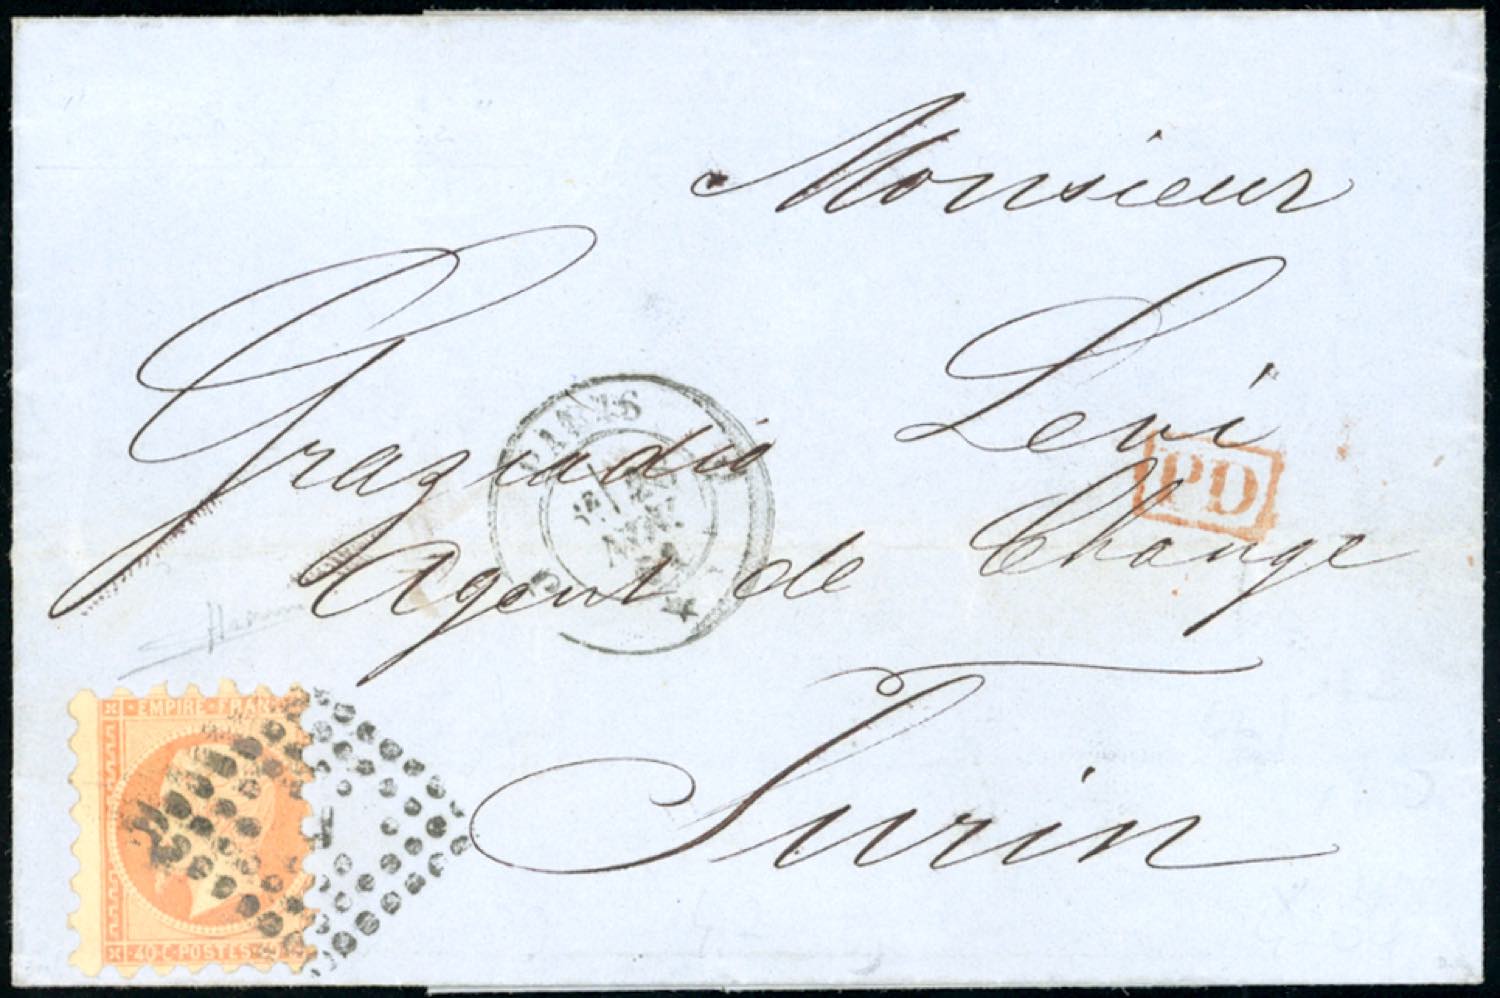 Monsieur
Graziadio Levi
Agent de Change
Turin
PARIS
PD
EMPIRE FRANC
40 C POSTES 40